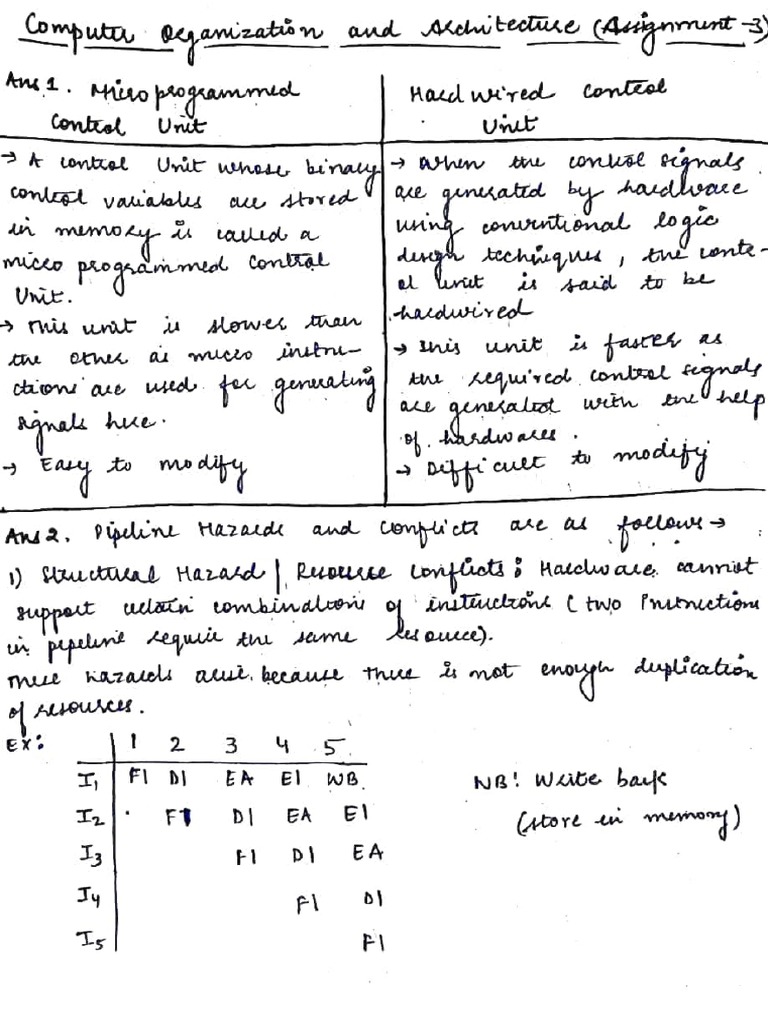 Computer Organization and Architecture (Assignment-3)
Ans 1. Microprogrammed
Control Unit
→ A control Unit whose binary
control variables are stored
in memory is called a
micro programmed Control
Unit.
→ This unit is slower than
the other as micro instru-
ctions are used for generating
signals here.
→ Easy to modify
Hardwired Control
Unit
→ When the control signals
are generated by hardware
using conventional logic
design techniques, the contr-
ol unit is said to be
hardwired
→ This unit is faster as
the required control signals
are generated with the help
of hardwares.
→ Difficult to modify
Ans 2. Pipeline Hazards and Conflicts are as follows →
1) Structural Hazard | Resource Conflicts: Hardware cannot
support certain combinations of instructions (two Instructions
in pipeline require the same resource).
These hazards arise because there is not enough duplication
of resources.
EX:
1 2 3 4 5
I1 FI DI EA EI WB
I2 FI DI EA EI
I3 FI DI EA
I4 FI DI
I5 FI
WB: Write back
(store in memory)